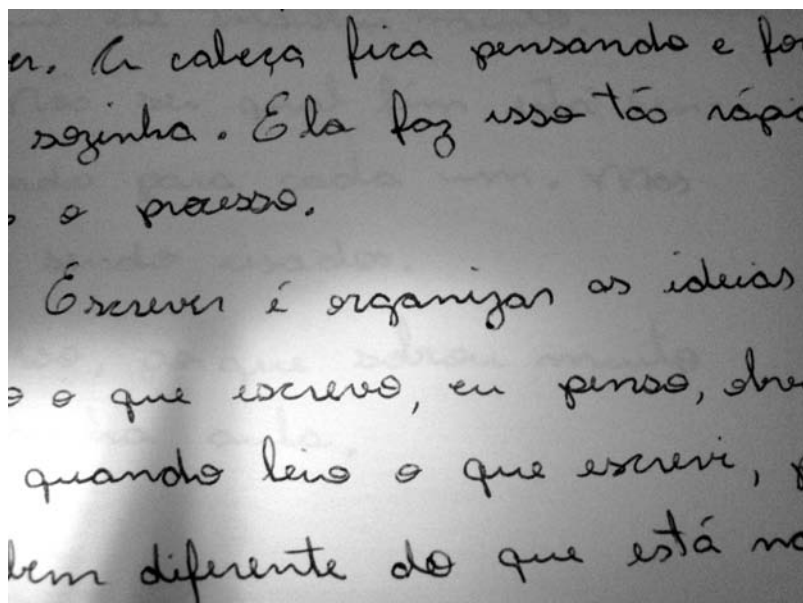 er. A cabeça fica pensando e fo
sozinha. Ela faz isso tão rápi
o processo.
Escrever é organizar as ideias
o que escrevo, eu penso,
quando leio o que escrevi,
bem diferente do que está no